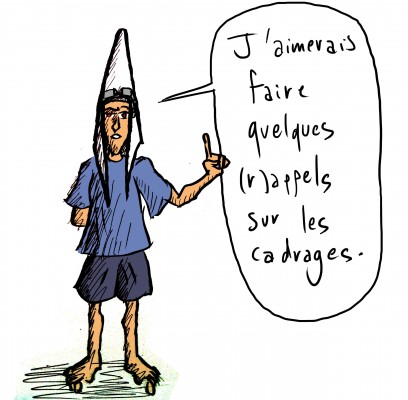 J'aimerais
faire
quelques
(r)appels
sur les
cadrages.